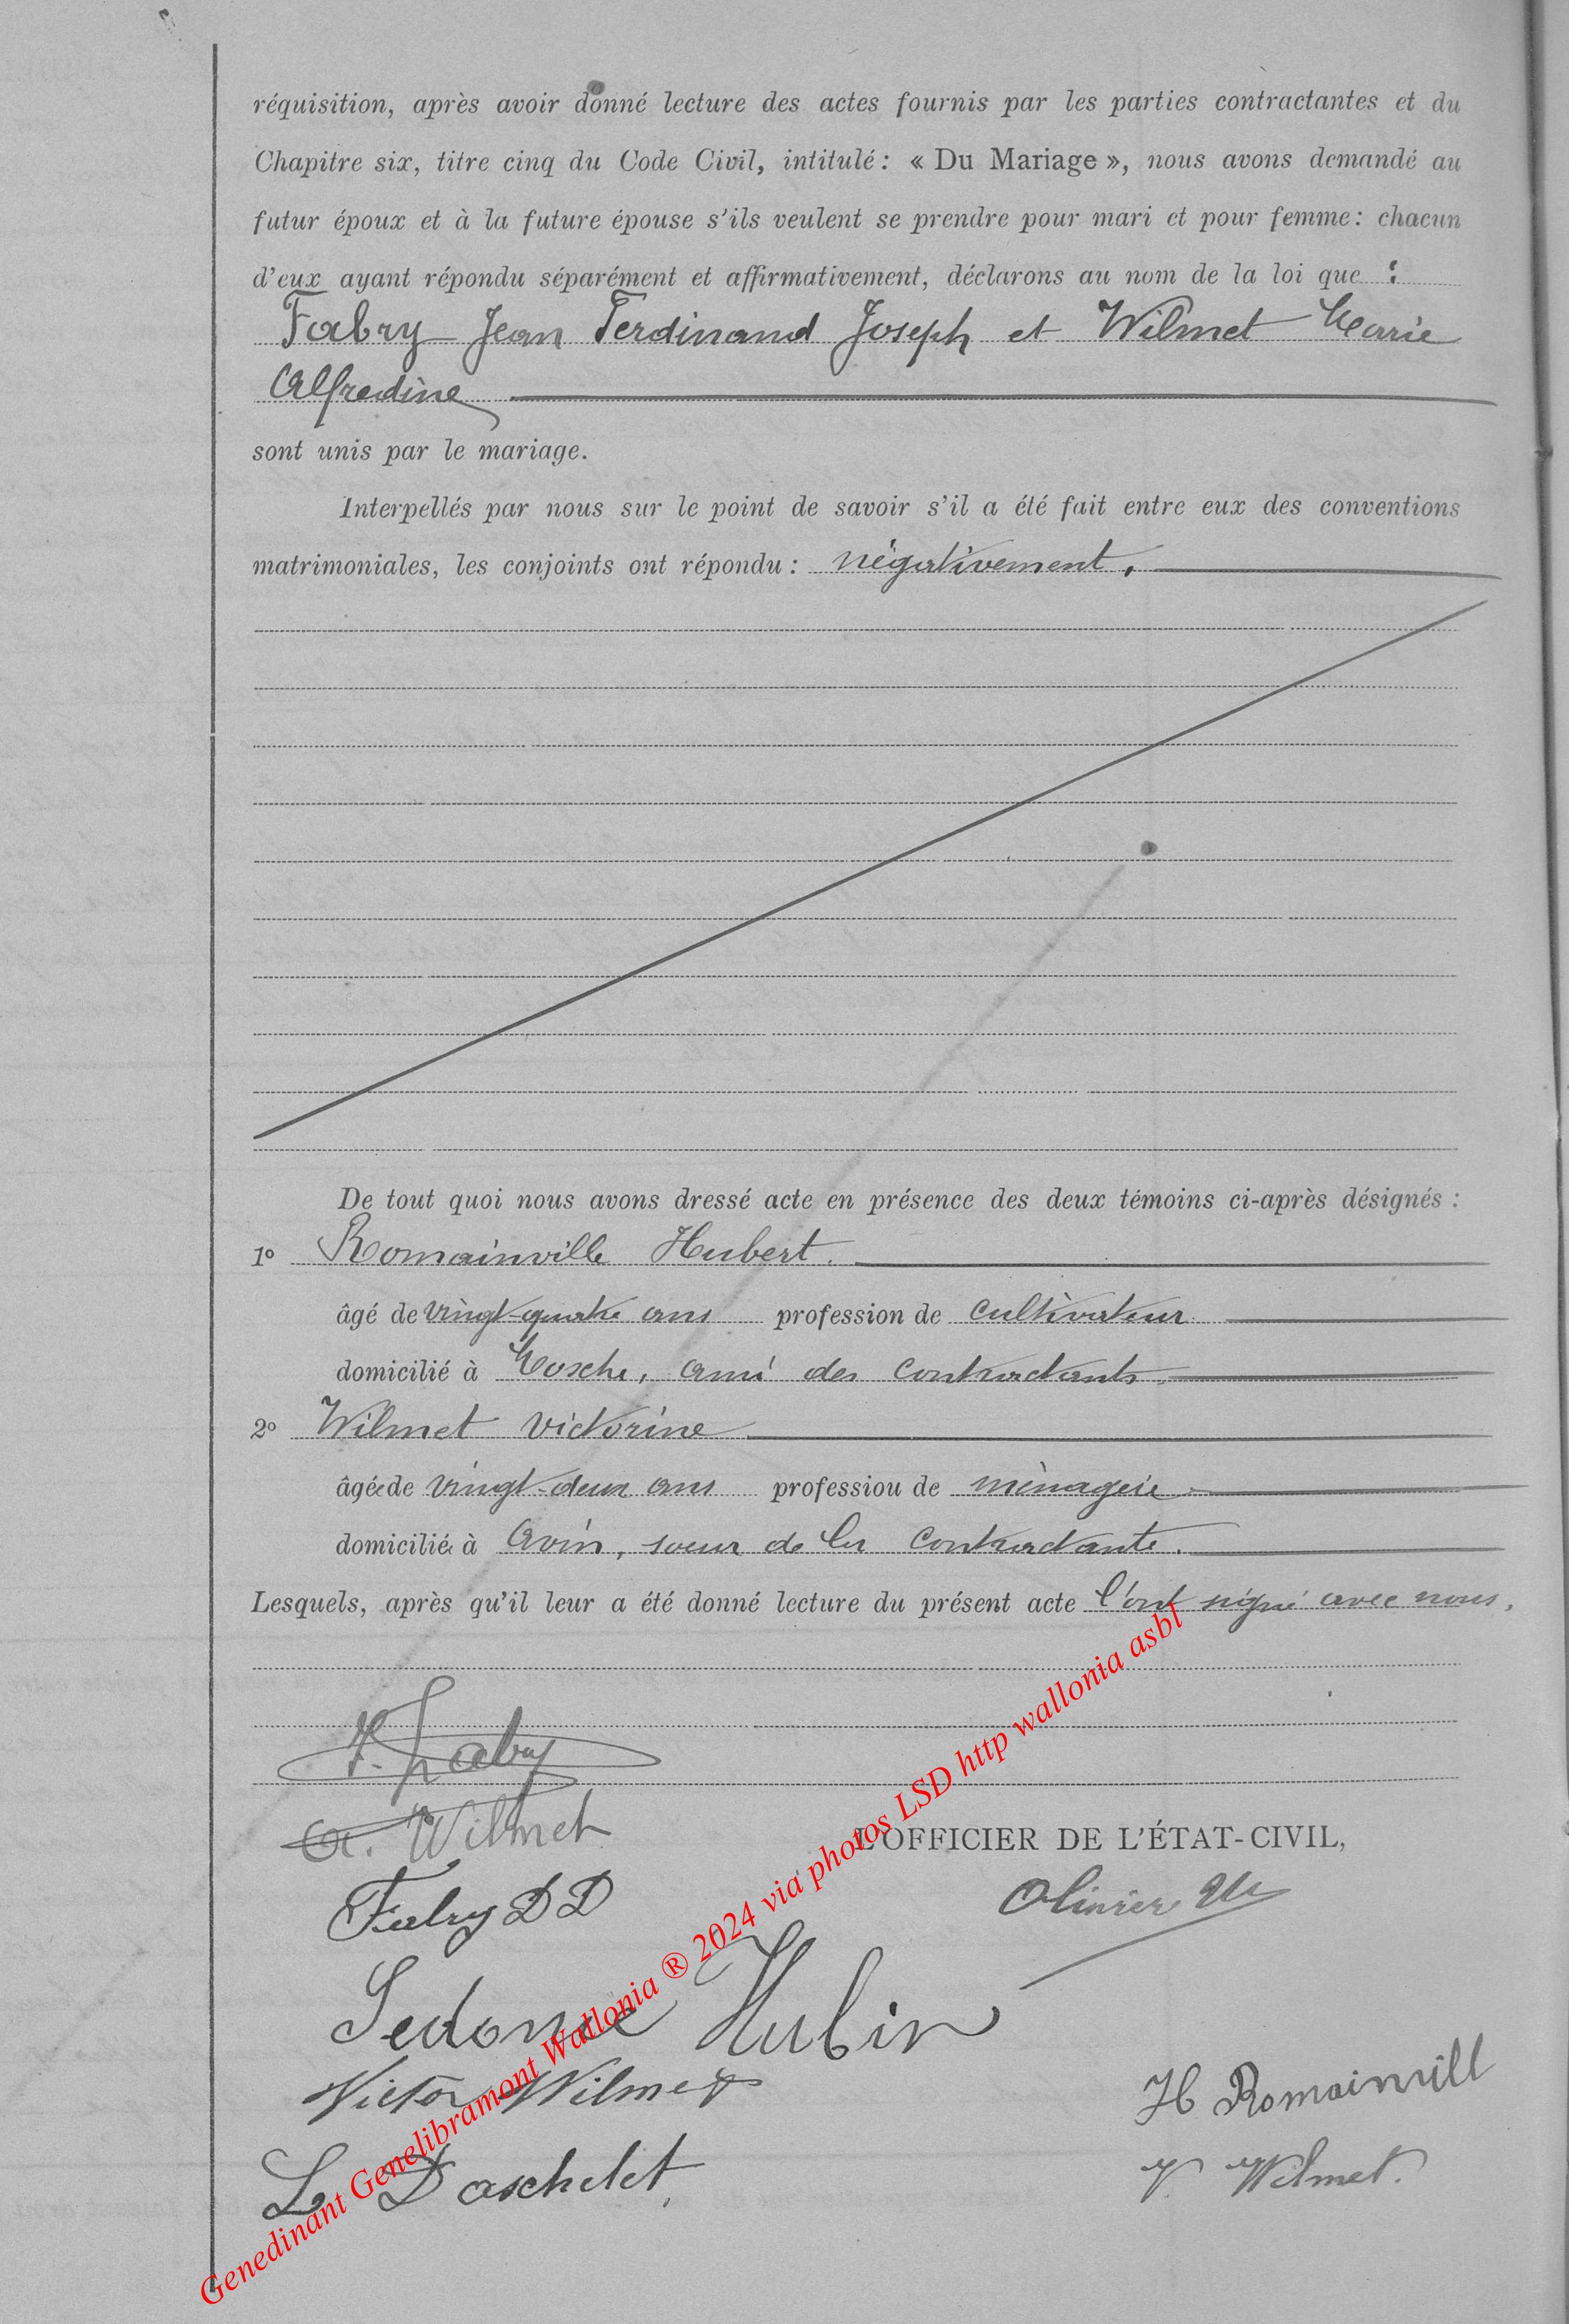 réquisition, après avoir donné lecture des actes fournis par les parties contractantes et du
Chapitre six, titre cinq du Code Civil, intitulé : « Du Mariage », nous avons demandé au
futur époux et à la future épouse s'ils veulent se prendre pour mari et pour femme : chacun
d'eux ayant répondu séparément et affirmativement, déclarons au nom de la loi que :
Fabry Jean Ferdinand Joseph et Wilmet Marie
Alfredine
sont unis par le mariage.
Interpellés par nous sur le point de savoir s'il a été fait entre eux des conventions
matrimoniales, les conjoints ont répondu : négativement.
De tout quoi nous avons dressé acte en présence des deux témoins ci-après désignés :
1º Romainville Hubert.
âgé de vingt-quatre ans profession de cultivateur
domicilié à Mosche, ami des contractants.
2º Wilmet Victorine
âgée de vingt-deux ans professiou de ménagère
domiciliée à Avin, soeur de la contractante.
Lesquels, après qu'il leur a été donné lecture du présent acte l'ont signé avec nous.
F. Fabry
A. Wilmet
L'OFFICIER DE L'ÉTAT-CIVIL,
Fabry D D
Olivier
Sedonie Hubin
Victor Wilmet
H Romainvill
L Daschelet
V. Wilmet.
Genedinant Genelibramont Wallonia ® 2024 via photos LSD http wallonia asbl